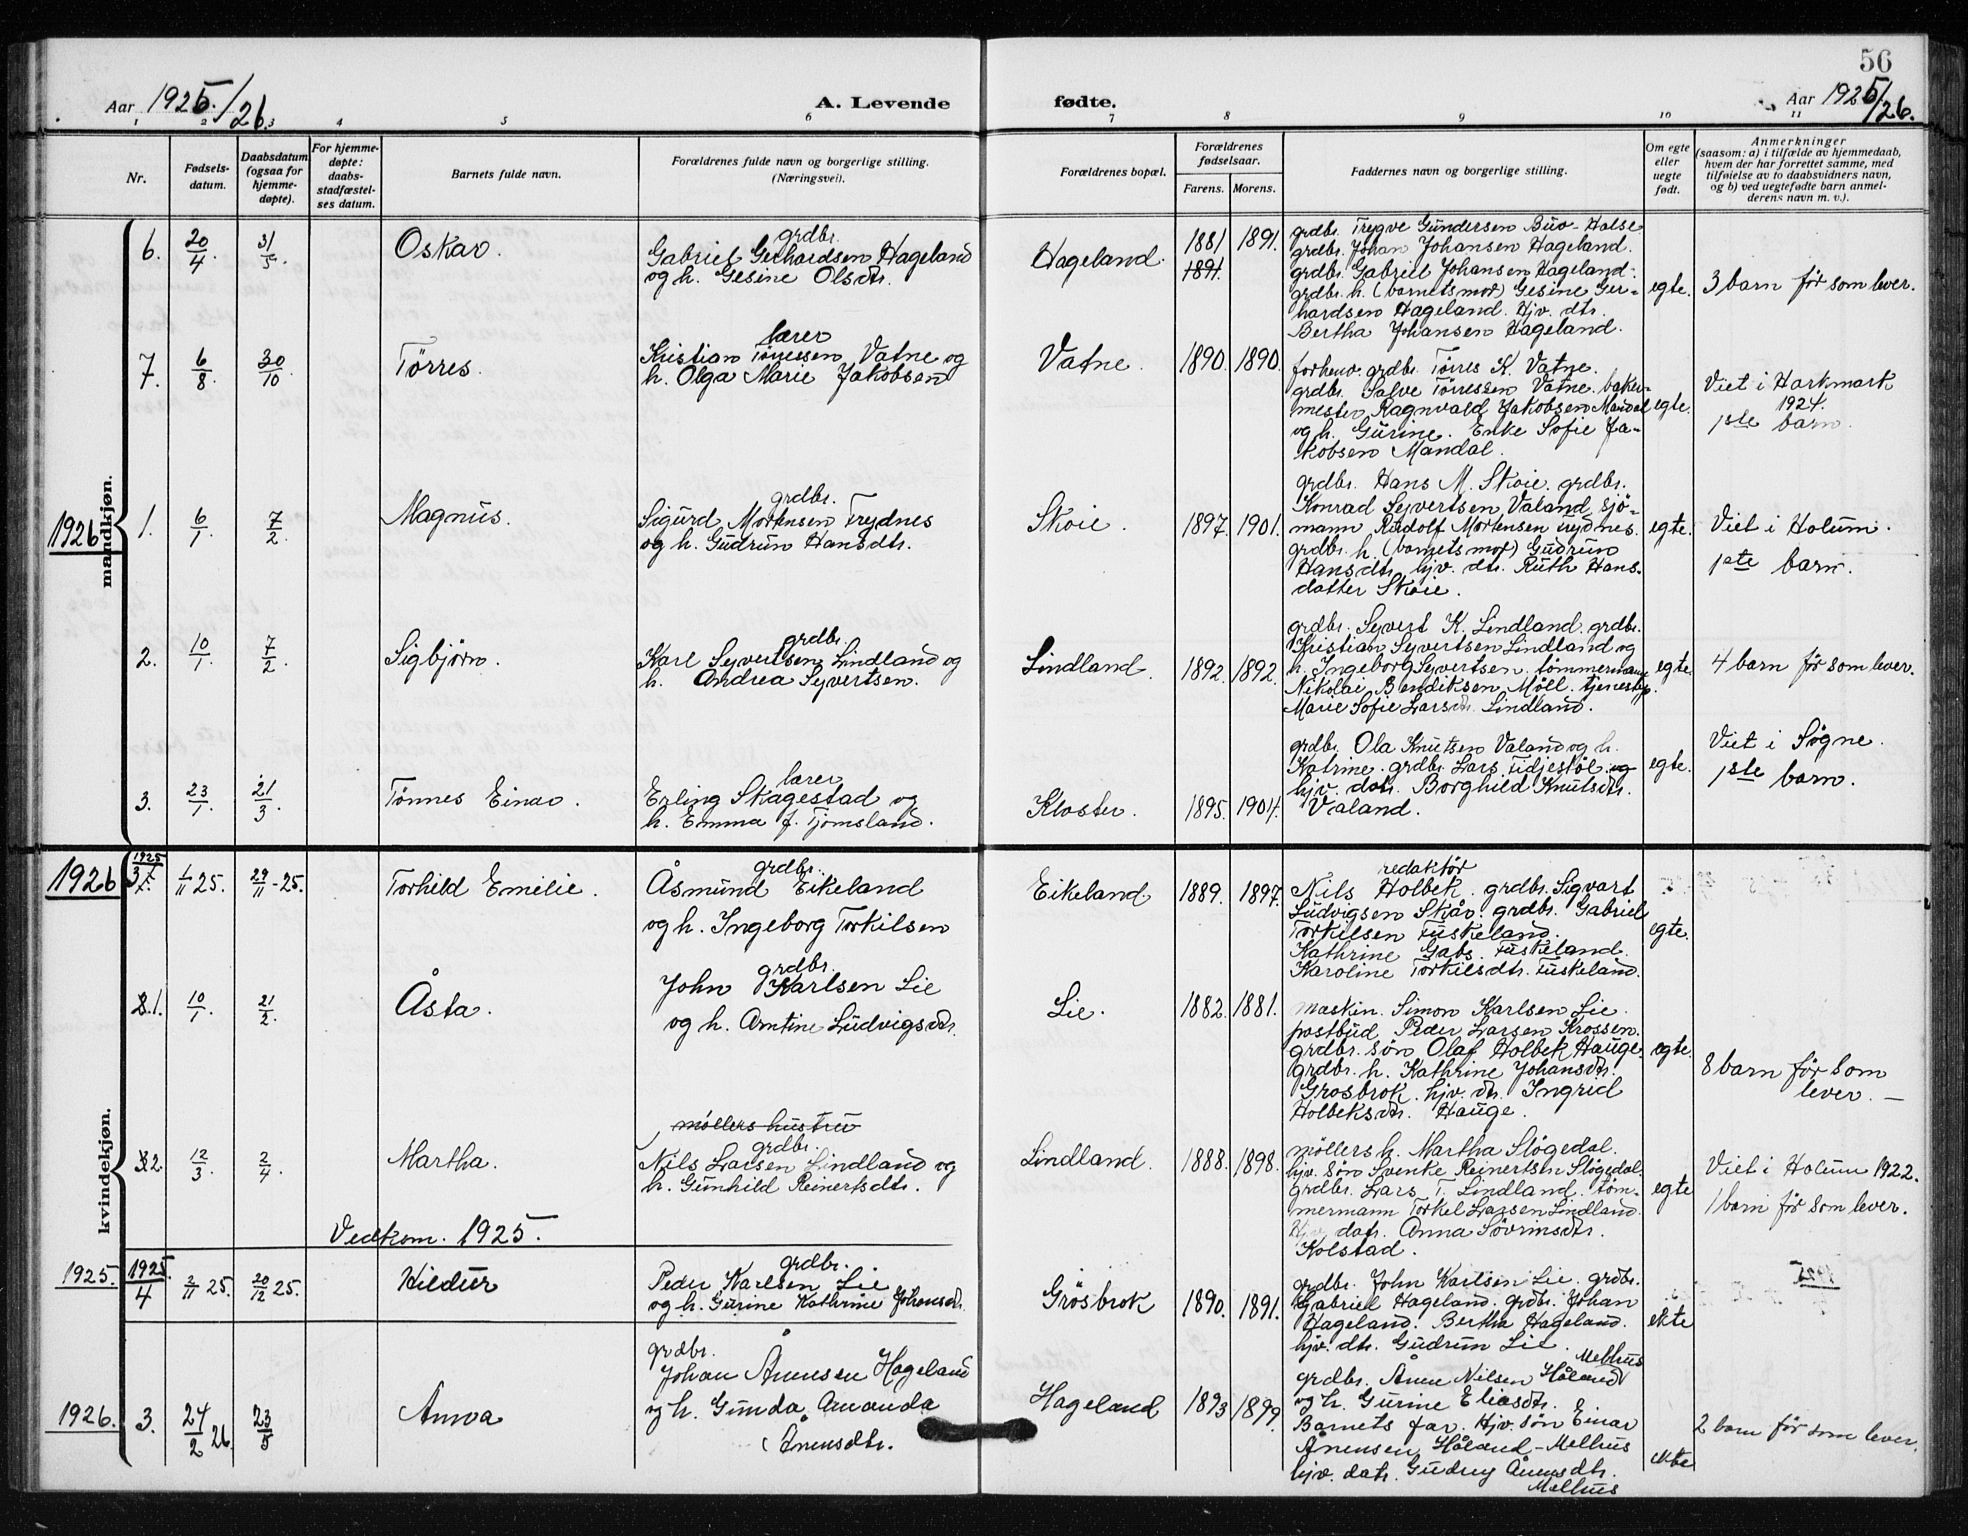 56
Aar 1925/26.
A. Levende fødte.
Aar 1925/26.
1 2 3 4 5 6 7 8 9 10 11
Nr.
Fødsels-
datum.
Daabsdatum
(ogsaa for
hjemme-
døpte).
For hjemme-
døpte:
daabs-
stadfæstel-
ses datum.
Barnets fulde navn.
Forældrenes fulde navn og borgerlige stilling.
(Næringsvei).
Forældrenes bopæl.
Forældrenes
fødselsaar.
Farens. Morens.
Faddernes navn og borgerlige stilling.
Om egte
eller
uegte
født.
Anmerkninger
(saasom: a) i tilfælde av hjemmedaab,
hvem der har forrettet samme, med
tilføielse av to daabsvidners navn,
og b) ved uegtefødte barn anmel-
derens navn m. v.).
1926
mandkjøn.
6. 20/4 31/5. Oskar.
grdbr.
Gabriel Gerhardsen Hageland
og h. Gesine Olsdtr.
Hageland. 1881 1891.
1891.
grdbr. Trygve Gundersen Buo-Holse
grdbr. Johan Johansen Hageland.
grdbr. Gabriel Johansen Hageland.
grdbr. h. (barnets mor) Gesine Ger-
hardsen Hageland. Hjv. dtr.
Bertha Johansen Hageland.
egte. 3 barn før som lever.
7. 6/8 30/10. Tørres.
lærer
Kristian Tørressen Vatne og
h. Olga Marie Jakobsen
Vatne. 1890. 1890.
forhenv. grdbr. Tørres K. Vatne.
grdbr. Salve Tørressen Vatne. baker-
mester Ragnvald Jakobsen Mandal
og h. Gurine. Enke Sofie Ja-
kobsen Mandal.
egte. Viet i Harkmark
1924.
1ste barn.
1. 6/1 7/2. Magnus.
grdbr.
Sigurd Mortensen Trydnes
og h. Gudrun Hansdtr.
Skoie. 1897. 1901.
grdbr. Hans M. Skoie. grdbr.
Konrad Syvertsen Valand. sjö-
mann Rudolf Mortensen Trydnes.
grdbr. h. (barnets mor) Gudrun
Hansdtr. hjv. dtr. Ruth Hans-
datter Skoie.
egte. Viet i Holum.
1ste barn.
2. 10/1 7/2. Sigbjørn.
grdbr.
Karl Syvertsen Lindland og
h. Andrea Syvertsen.
Lindland. 1892. 1892.
grdbr. Syvert K. Lindland. grdbr.
Kristian Syvertsen Lindland og
h. Ingeborg Syvertsen. tømmermann
Nikolai Bendiksen Møll. tjenestep.
Marie Sofie Larsdtr. Lindland.
egte. 4 barn før som lever.
3. 23/1 21/3. Tønnes Einar.
lærer
Erling Skagestad og
h. Emma f. Tjomsland.
Kloster. 1895. 1904.
grdbr. Ola Knutsen Valand og h.
Katrine. grdbr. Lars Fidjestøl og
hjv. datr. Borghild Knutsdtr.
Valand.
egte. Viet i Søgne.
1ste barn.
1926
kvindekjøn.
1925
3. 1/11 25. 29/11-25. Torhild Emilie.
grdbr.
Åsmund Eikeland
og h. Ingeborg Torkilsen
Eikeland. 1889. 1897.
redaktør
Nils Holbek. grdbr. Sigvart
Ludvigsen Skår. grdbr. Gabriel
Torkilsen Fuskeland.
Kathrine Gabs. Fuskeland.
Karoline Torkilsdtr. Fuskeland.
egte.
1. 10/1 21/2. Åsta.
grdbr.
John Karlsen Lie
og h. Amtine Ludvigsdtr.
Lie. 1882. 1881.
maskin. Simon Karlsen Lie.
postbud Peder Larsen Krossen.
grdbr. søn Olaf Holbek Hauge.
grdbr. h. Kathrine Johansdtr.
Grosbrok. hjv. dtr. Ingrid
Holbeksdtr. Hauge.
egte. 8 barn før som
lever. —
2. 12/3 2/4. Martha.
møllers hustru
grdbr.
Nils Larsen Lindland og
h. Gunhild Reinertsdtr.
Lindland. 1888. 1898.
møllers h. Martha Sløgedal.
hjv. søn Svenke Reinertsen Sløgedal.
grdbr. Lars T. Lindland. tøm-
mermann Torkel Larsen Lindland.
Hjv. datr. Anna Sövrinsdtr.
Kolstad.
egte Viet i Holum 1922.
1 barn før som lever.
Vedkom. 1925.
1925. 1925.
4 2/11 25. 20/12 25. Hildur
grdbr.
Peder Karlsen Lie
og h. Gurine Kathrine Johansdtr.
Grösbrok 1890. 1891.
grdbr. John Karlsen Lie. grdbr.
Gabriel Hageland. grdbr. Johan
Hageland. Bertha Hageland.
hjv. dtr. Gudrun Lie.
ekte
1926. 3. 24/2 26 23/5 Anna
grdbr.
Johan Ånensen Hageland
og h. Gunda Amanda
Ånensdtr.
Hageland 1893 1899.
Melhus
grdbr. Ånen Nilsen Håland
og h. Gurine Eliasdtr.
Barnets far. Hjv. søn Einar
Ånensen Håland-Melhus
hjv. datr. Gudny Ånensdtr.
Melhus
ekte 2 barn før som lever.